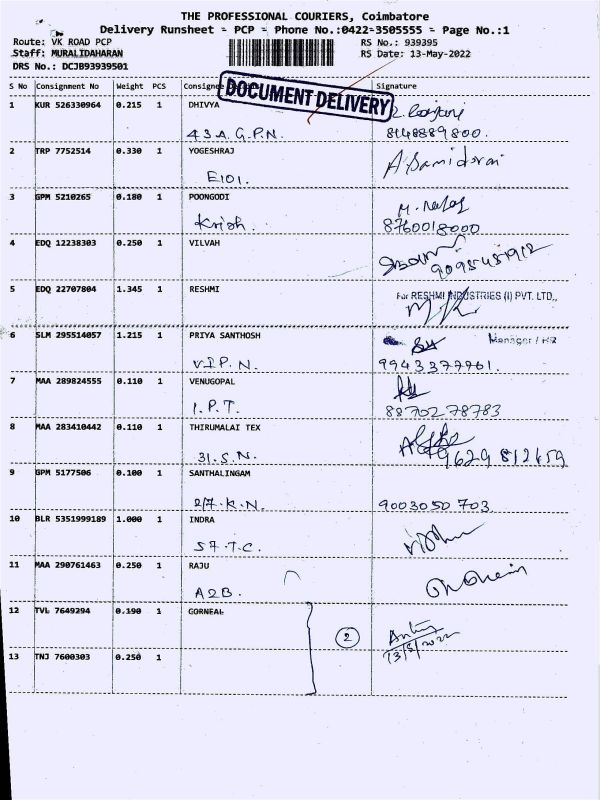 THE PROFESSIONAL COURIERS, Coimbatore
Delivery Runsheet - PCP - Phone No.:0422-3505555 - Page No.:1
Route: VK ROAD PCP
RS No.: 939395
Staff: MURALIDAHARAN
RS Date: 13-May-2022
DRS No.: DCJB93939501
S No Consignment No Weight PCS Consignee Signature
DOCUMENT DELIVERY
1 KUR 526330964 0.215 1 DHIVYA
43A.G.P.N. 8148889800.
2 TRP 7752514 0.330 1 YOGESHRAJ
E101.
3 GPM 5210265 0.180 1 POONGODI
Krish. 8760018000
4 EDQ 12238303 0.250 1 VILVAH
9095451912
5 EDQ 22707804 1.345 1 RESHMI
For RESHMI INDUSTRIES (I) PVT. LTD.,
6 SLM 295514057 1.215 1 PRIYA SANTHOSH
Manager / HR
V.I.P.N. 9943377761.
7 MAA 289824555 0.110 1 VENUGOPAL
I.P.T. 8870278783
8 MAA 283410442 0.110 1 THIRUMALAI TEX
31.S.N. 9629812459
9 GPM 5177506 0.100 1 SANTHALINGAM
2/7.K.N. 9003050703
10 BLR 5351999189 1.000 1 INDRA
57.T.C.
11 MAA 290761463 0.250 1 RAJU
A2B.
12 TVL 7649294 0.190 1 GORNEAL
2
13/5/2022
13 TNJ 7600303 0.250 1